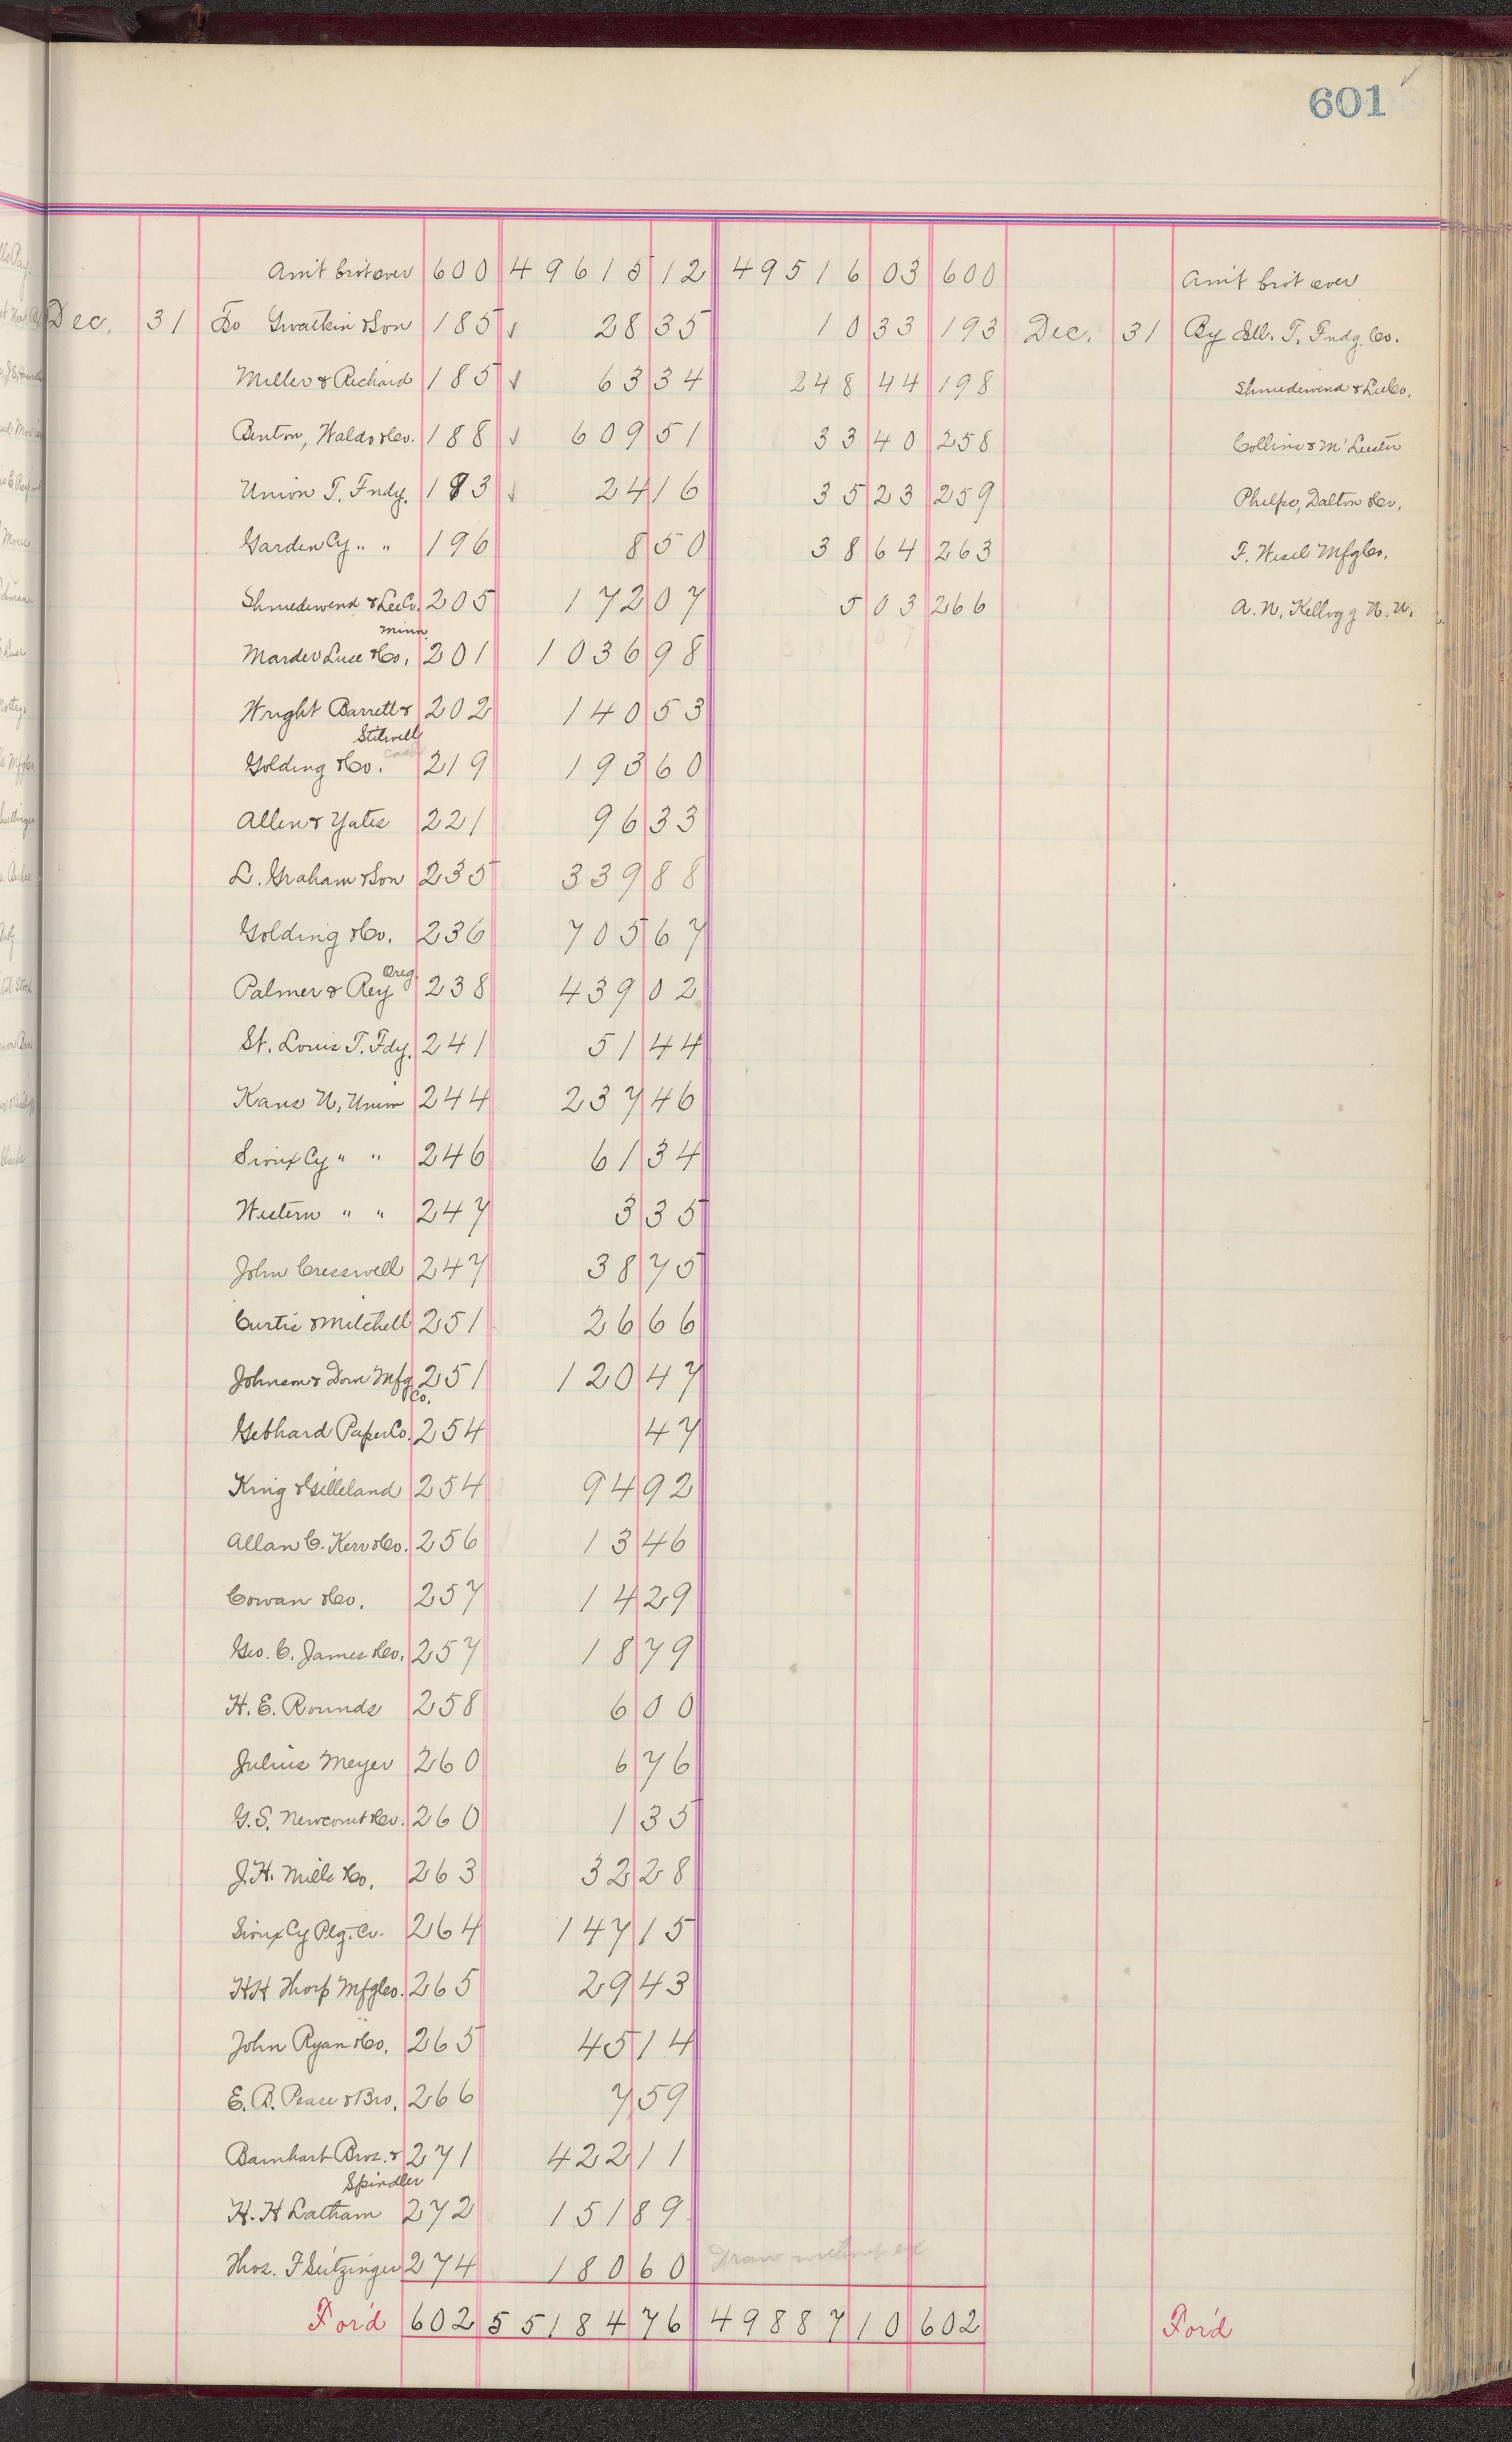 601
Am't brot over 600 49615 12 49516 03 600 Am't brot over
Dec. 31 To Gwatkin & Son 185 28 35 10 33 193 Dec. 31 By Ill. T. Fndg. Co.
Miller & Richard 185 63 34 248 44 198 Shniedewend & Lee Co.
Benton, Waldo & Co. 188 609 51 33 40 258 Collins & McLeester
Union T. Fndy. 193 24 16 35 23 259 Phelps, Dalton & Co.
Garden Cy " " 196 8 50 38 64 263 F. Wesel Mfg Co.
Shniedewend & Lee Co. 205 172 07 5 03 266 A. N. Kellogg N. U.
Minn.
Marder Luse & Co. 201 1036 98
Wright Barrett & 202 140 53
Stilwell
Golding & Co. Cash 219 193 60
Allen & Yates 221 96 33
L. Graham & Son 235 339 88
Golding & Co. 236 705 67
Oreg.
Palmer & Rey 238 439 02
St. Louis T. Fdy. 241 51 44
Kans N. Union 244 237 46
Sioux Cy " " 246 61 34
Western " " 247 3 35
John Cresswell 247 38 75
Curtis & Mitchell 251 26 66
Johnson & Dorn Mfg 251 120 47
Co.
Gebhard Paper Co. 254 47
King & Gilleland 254 94 92
Allan C. Kerr & Co. 256 13 46
Cowan & Co. 257 14 29
Geo. C. James & Co. 257 18 79
H. E. Rounds 258 6 00
Julius Meyer 260 6 76
G. S. Newcomb & Co. 260 1 35
J. H. Mills & Co. 263 32 28
Sioux Cy Ptg. Co. 264 147 15
HH Thorp Mfg Co. 265 29 43
John Ryan & Co. 265 45 14
E. B. Pease & Bro. 266 7 59
Barnhart Bros. & 271 422 11
Spindler
H. H Latham 272 151 89
Thos. F Seitzinger 274 180 60 Draw without ex
For'd 602 55184 76 49887 10 602 For'd